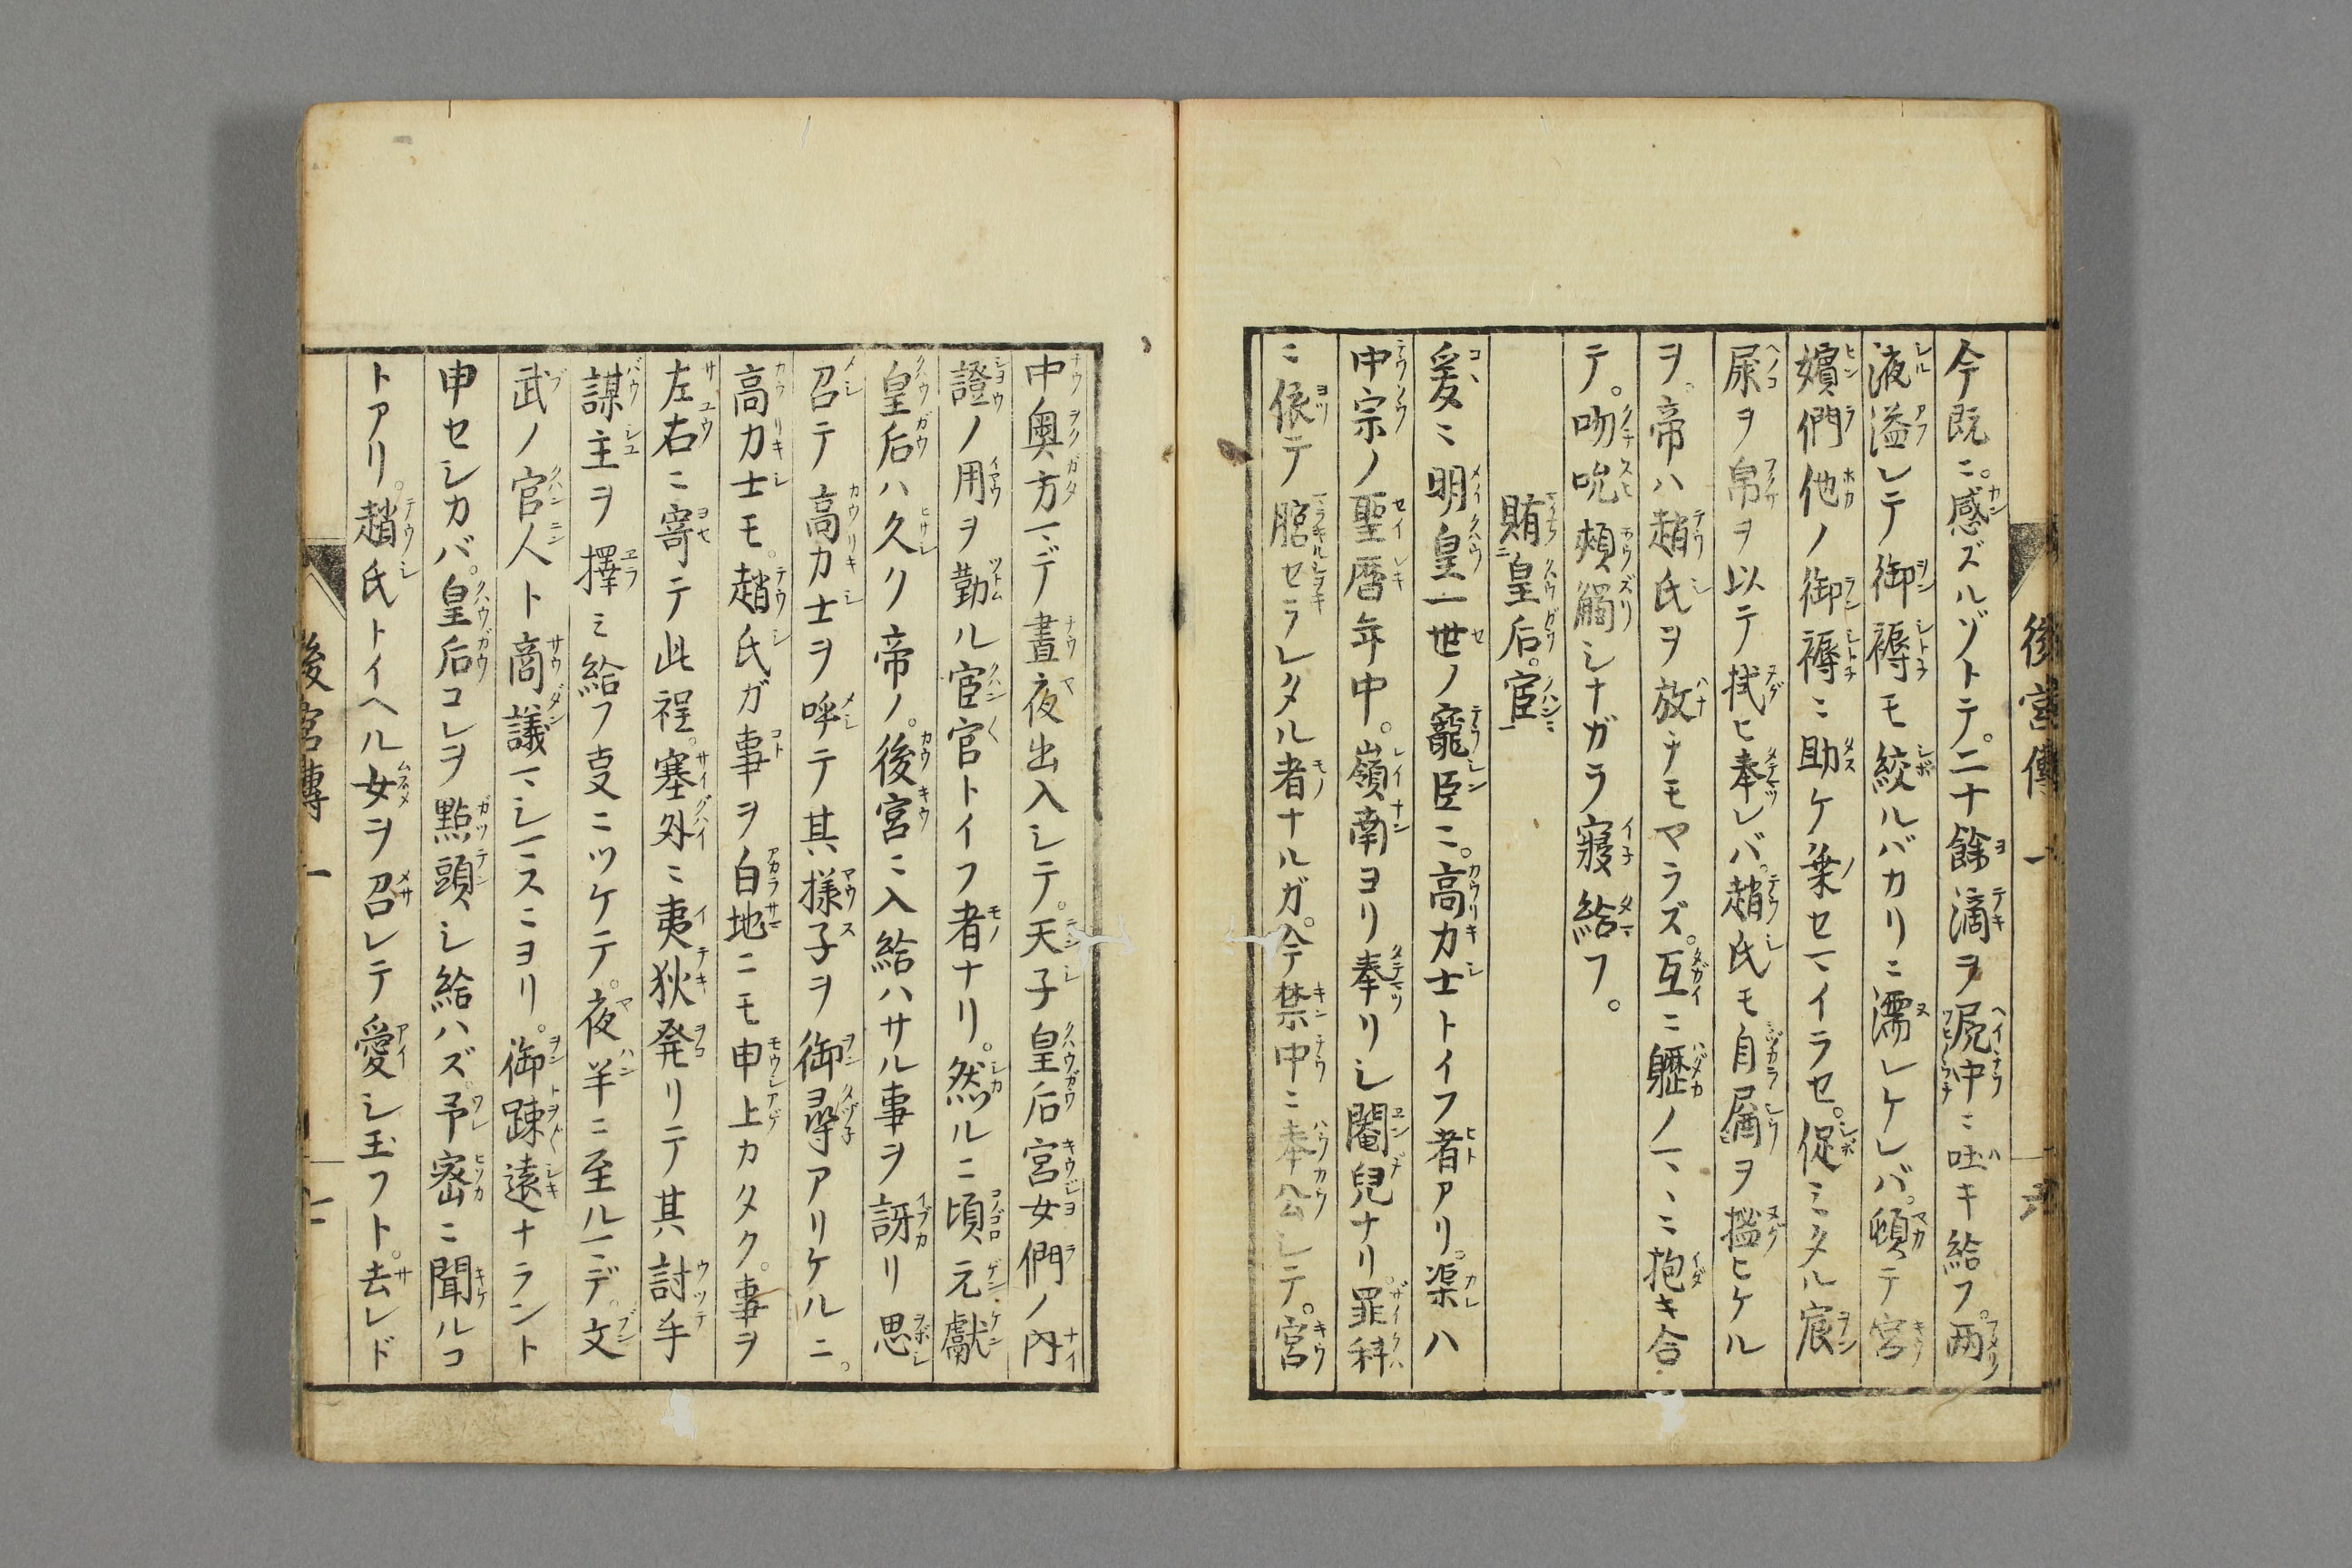 今既ニ。感ズルゾトテ。二十餘滴ヲ屍中ニ吐キ給フ。两
液溢レテ御褥モ絞ルバカリニ濡レケレバ。頓テ宮
嬪們他ノ御褥ニ助ケ乗セマイラセ。促ミタル宸
屎ヲ帛ヲ以テ拭ヒ奉レバ。趙氏モ自屑ヲ搵ヒケル
ヲ。帝ハ趙氏ヲ放チモヤラズ。互ニ軆ノマヽニ抱キ合
テ。吻吮頰觸シナガラ寢給フ。
賄皇后。宦
爰ニ明皇一世ノ寵臣ニ。高力士トイフ者アリ。渠ハ
中宗ノ聖曆年中。嶺南ヨリ奉リシ閹兒ナリ罪科
ニ依テ腐セラレタル者ナルガ。今禁中ニ奉公シテ。宮
中奧方マデ晝夜出入シテ。天子皇后宮女們ノ內
證ノ用ヲ勤ル宦官トイフ者ナリ。然ルニ頃元獻
皇后ハ久ク帝ノ。後宮ニ入給ハサル事ヲ訝リ思
召テ高力士ヲ呼テ其樣子ヲ御尋アリケルニ。
高力士モ。趙氏ガ事ヲ白地ニモ申上カタク。事ヲ
左右ニ寄テ此程。塞外ニ夷狄発リテ其討手
謀主ヲ擇ミ給フ叓ニツケテ。夜半ニ至ルマデ。文
武ノ官人ト商議マシマスニヨリ。御踈遠ナラント
申セシカバ。皇后コレヲ點頭シ給ハズ。予密ニ聞ルコ
トアリ。趙氏トイヘル女ヲ召レテ愛シ玉フト。去レド
後宮傳 一